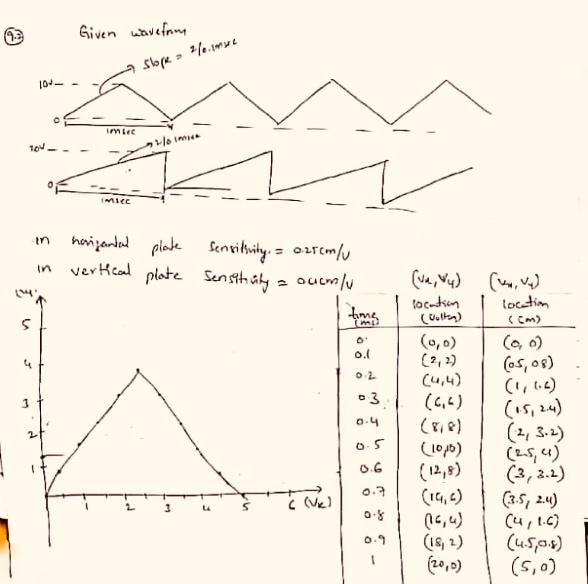 9.3
Given waveform
slope = 2/0.1msec
10v
0
1msec
20v
2/0.1msec
0
1msec
in horizontal plate sensitivity = 0.25cm/v
in vertical plate sensitivity = 0.4cm/v
5
4
3
2
1
1 2 3 4 5 6 (Vx)
time (ms) (Vx, Vy) location (volton) (Vx, Vy) location (cm)
0 (0,0) (0, 0)
0.1 (2,2) (0.5, 0.8)
0.2 (4,4) (1, 1.6)
0.3 (6,6) (1.5, 2.4)
0.4 (8,8) (2, 3.2)
0.5 (10,10) (2.5, 4)
0.6 (12,8) (3, 3.2)
0.7 (14,6) (3.5, 2.4)
0.8 (16,4) (4, 1.6)
0.9 (18,2) (4.5,0.8)
1 (20,0) (5,0)